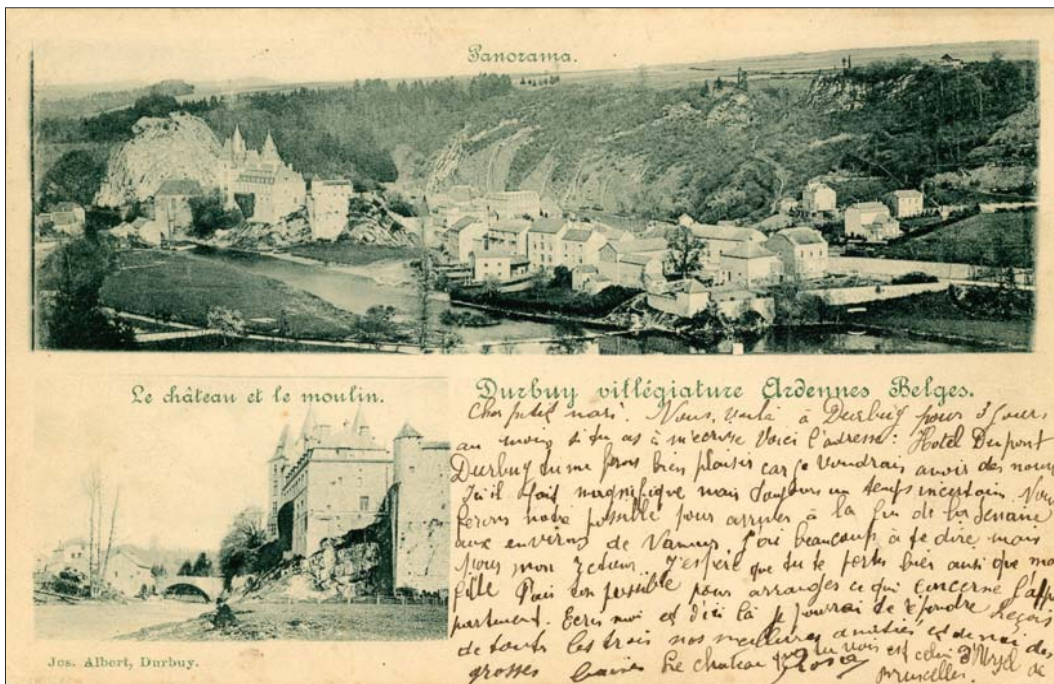 Panorama.
Le château et le moulin.
Durbuy villégiature Ardennes Belges.
Cher petit mari. Nous voilà à Durbuy pour 3 jours
au moins si tu as à m'écrire Voici l'adresse: Hotel Dupont
Durbuy tu me feras bien plaisir car je voudrais avoir des nouv
Ici il fait magnifique mais toujours un temps incertain Nou
ferons notre possible pour arriver à la fin de la semaine
aux environs de J'ai beaucoup à te dire mais
J'espère que tu te portes bien ainsi que ma
fille Fais ton possible pour arranger ce qui concerne l'app
partement. Ecris moi et d'ici là je pourrai te répondre Reçois
de touts les trois nos meilleures amitiés et de moi des
grosses baises Le chateau que tu vois est celui d'Ursel de
Rosa Bruxelles.
Jos. Albert, Durbuy.